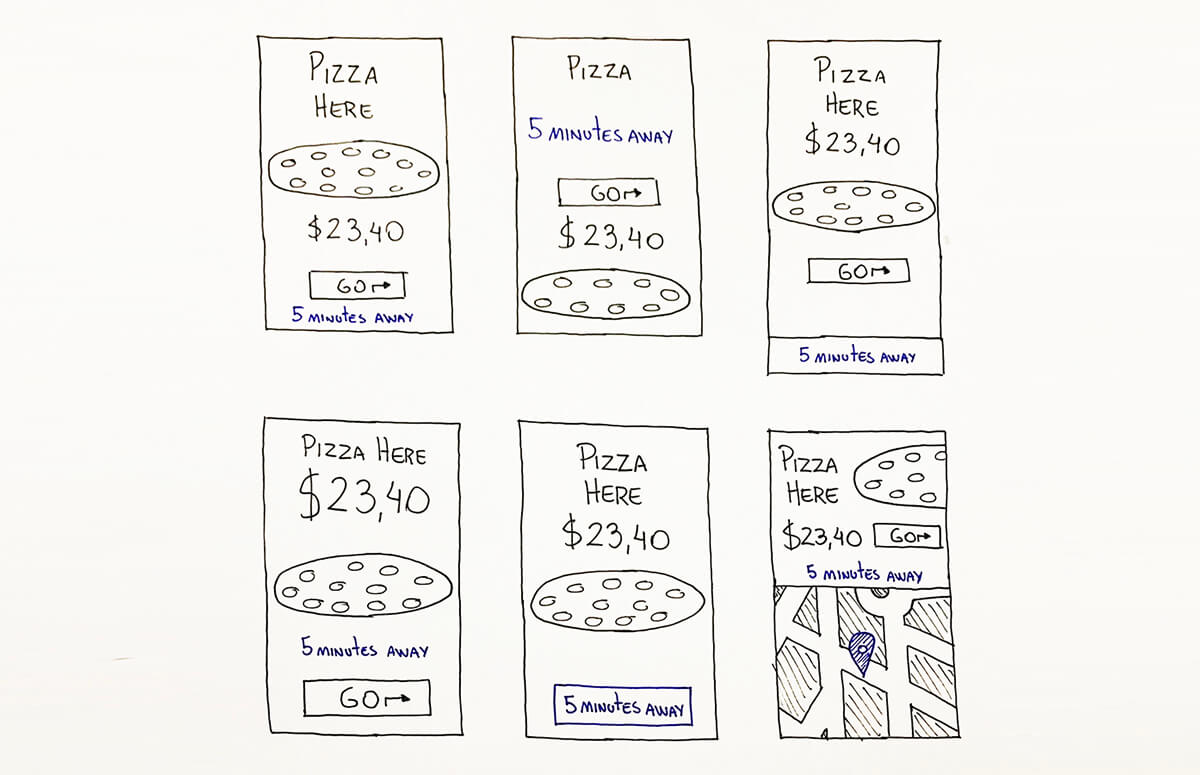 Pizza
Here
$23,40
GO
5 minutes away
Pizza
5 minutes away
GO
$23,40
Pizza
Here
$23,40
GO
5 minutes away
Pizza Here
$23,40
5 minutes away
GO
Pizza
Here
$23,40
5 minutes away
Pizza
Here
$23,40 GO
5 minutes away